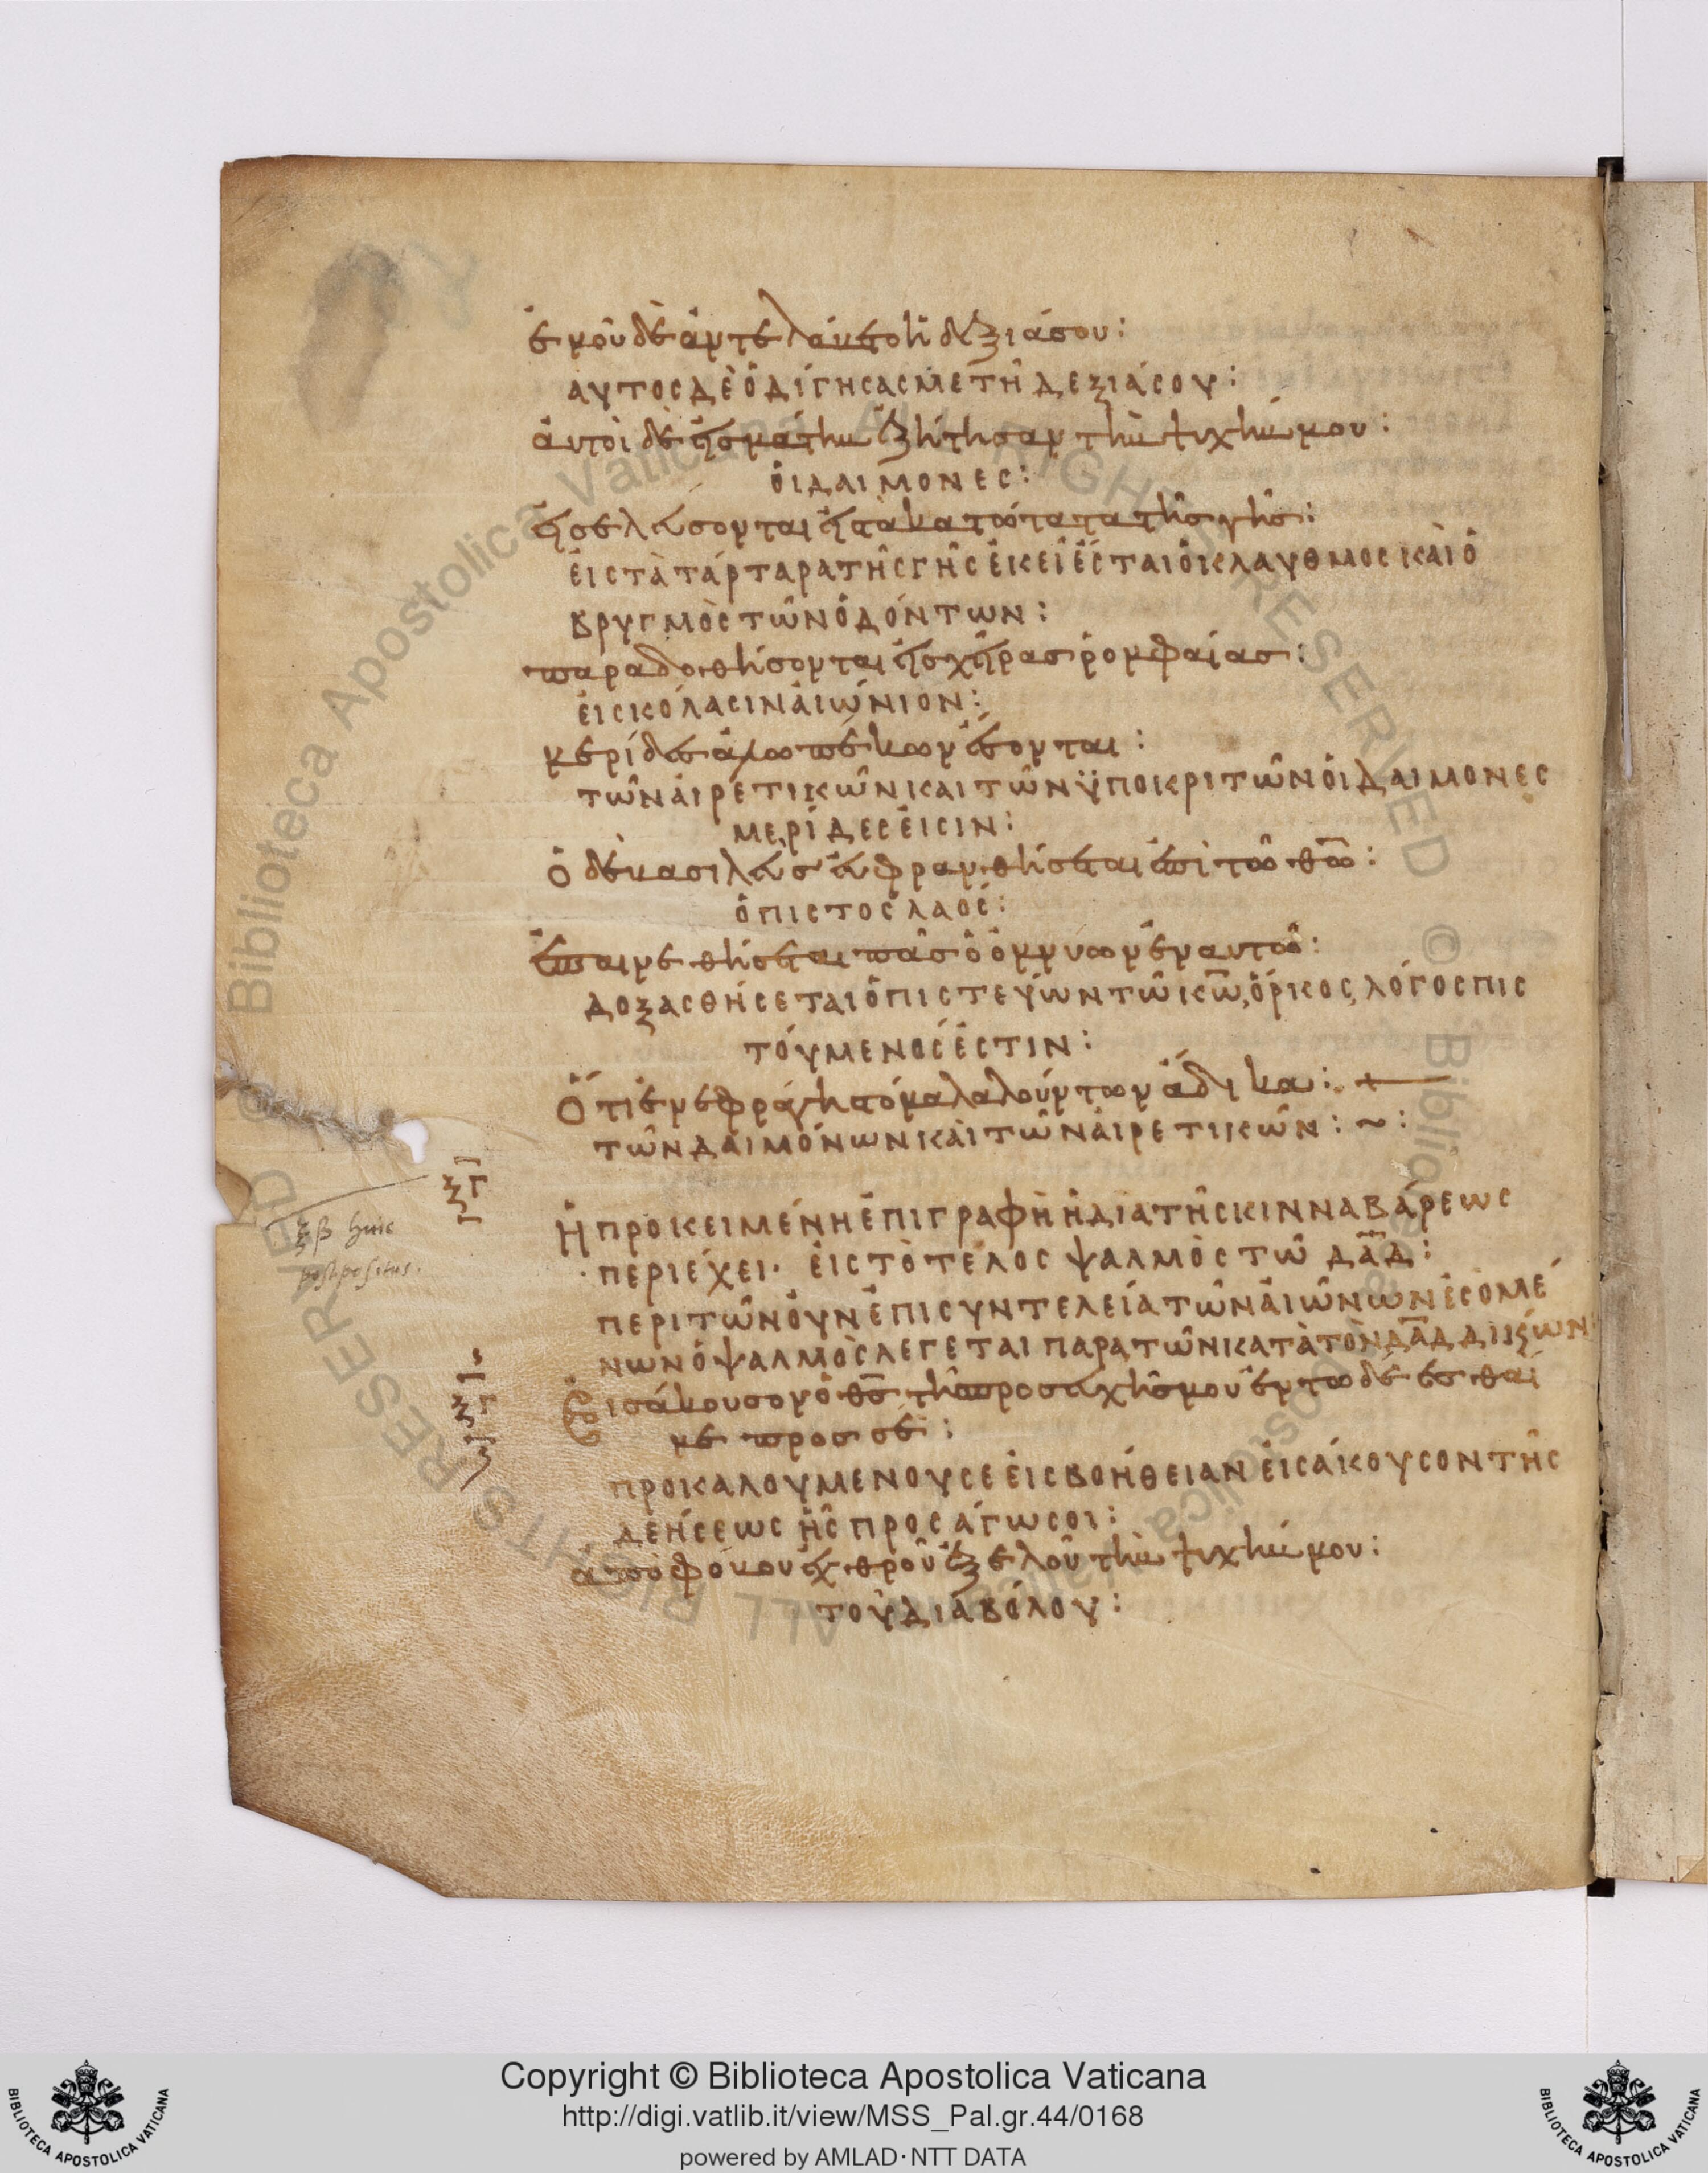 ἐμοῦ δὲ ἀντελάβετο ἡ δεξιά σου:
ΑΥΤΟΣ ΔΕ ὉΔΙΓΗΣΑΣ ΜΕ ΤΗ ΔΕΞΙΑ ΣΟΥ:
ἀυτοὶ δὲ εἰς μάτην ἐζήτησαν τὴν ψυχήν μου:
ὉΙ ΔΑΙΜΟΝΕΣ:
εἰσελεύσονται εἰς τὰ κατώτατα τῆς γῆς:
ἘΙΣ ΤᾺ ΤΆΡΤΑΡΑ ΤΗΣ ΓΗΣ ἘΚΕΙ ἜΣΤΑΙ Ὁ ΚΛΑΥΘΜΟΣ ΚΑΙ Ὁ
ΒΡΥΓΜῸΣ ΤΩΝ ὈΔΌΝΤΩΝ:
παραδοθήσονται εἰς χεῖρας ῥομφαίας:
ἘΙΣ ΚΌΛΑΣΙΝ ἈΙΏΝΙΟΝ:
μερίδες ἀλωπέκων ἔσονται:
ΤΩΝ ἉΙΡΕΤΙΚΩΝ ΚΑΙ ΤΩΝ ΫΠΟΚΡΙΤΩΝ ὉΙ ΔΑΙΜΟΝΕΣ
ΜΕΡΊΔΕΣ ἘΙΣΙΝ:
ὁ δὲ βασιλεὺς εὐφρανθήσεται ἐπὶ τῶ θω:
Ὁ ΠΙΣΤΟΣ ΛΑΟΣ:
ἐπαινεθήσεται πᾶς ὁ ὀμνύων ἐν αυτῶ:
ΔΟΞΑΣΘΉΣΕΤΑΙ Ὁ ΠΙΣΤΕΎΩΝ ΤΩ ΚΩ, ὍΡΚΟΣ, ΛΌΓΟΣ ΠΙΣ
ΤΌΥΜΕΝΟΣ ἘΣΤΙΝ:
Ὅτι ἐνεφράγη στόμα λαλούντων ἄδικα:
ΤΩΝ ΔΑΙΜΌΝΩΝ ΚΑῚ ΤΩΝ ἉΙΡΕΤΙΚΩΝ: ~:
ξγ
ξβ huic
postpositus.
Ἡ ΠΡΟΚΕΙΜΈΝΗ ἘΠΙΓΡΑΦῊ Ἡ ΔΙΑ ΤΗΣ ΚΙΝΝΑΒΆΡΕΩΣ
·ΠΕΡΙΈΧΕΙ· ἘΙΣ ΤῸ ΤΕΛΟΣ ΨΑΛΜῸΣ ΤΩ ΔΑΔ:
ΠΕΡΙ ΤΩΝ ὈΥΝ ἘΠΙ ΣΥΝΤΕΛΕΊΑ ΤΩΝ ἈΙΏΝΩΝ ἘΣΟΜΈ
ΝΩΝ Ὁ ΨΑΛΜῸΣ ΛΕΓΕΤΑΙ ΠΑΡΑ ΤΩΝ ΚΑΤᾺ ΤῸΝ ΔΑΔ ΔΙΙΞΊΩΝ
ξγ
Εισάκουσον ὁ θς τῆς προσευχῆς μου ἐν τῶ δέεσθαί
με προς σέ:
ΠΡΟΚΑΛΟΥΜΕΝΟΥ ΣΕ ἘΙΣ ΒΟΉΘΕΙΑΝ ἘΙΣΆΚΟΥΣΟΝ ΤΗΣ
ΔΕΉΣΕΩΣ ΗΣ ΠΡΟΣΆΓΩ ΣΟΙ:
ἀπὸ φόβου ἐχθροῦ ἐξελοῦ τὴν ψυχήν μου:
ΤΟΥ ΔΙΑΒΌΛΟΥ:
Copyright © Biblioteca Apostolica Vaticana
http://digi.vatlib.it/view/MSS_Pal.gr.44/0168
powered by AMLAD·NTT DATA
BIBLIOTECA APOSTOLICA VATICANA
BIBLIOTECA APOSTOLICA VATICANA